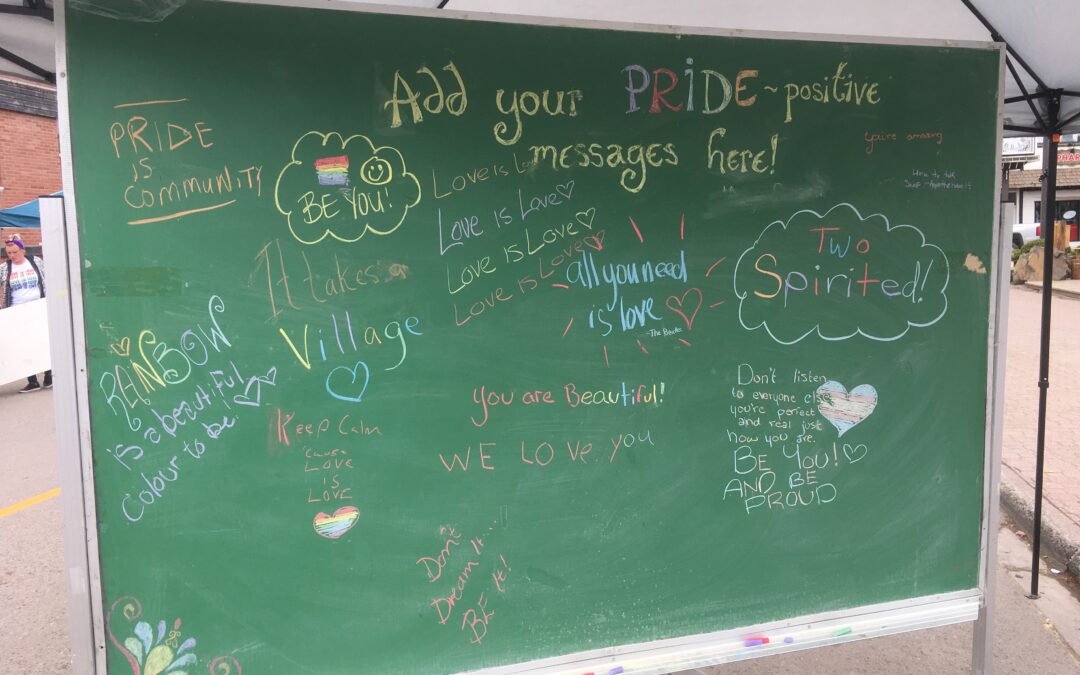 Add your PRIDE~positive
messages here!
PRIDE
is
COMMUNITY
BE YOU!
Love is Love
Love is Love
Love is Love
Love is Love
You're amazing
all you need
is love
-The Beatles
Two
Spirited!
It takes a
Village
RAINBOW
is a beautiful
colour to be!
Keep Calm
'cause
LOVE
IS
LOVE
You are Beautiful!
WE LOVE YOU
Don't listen
to everyone else
you're perfect
and real just
how you are.
BE YOU!
AND BE
PROUD
Don't
Dream It...
BE It!